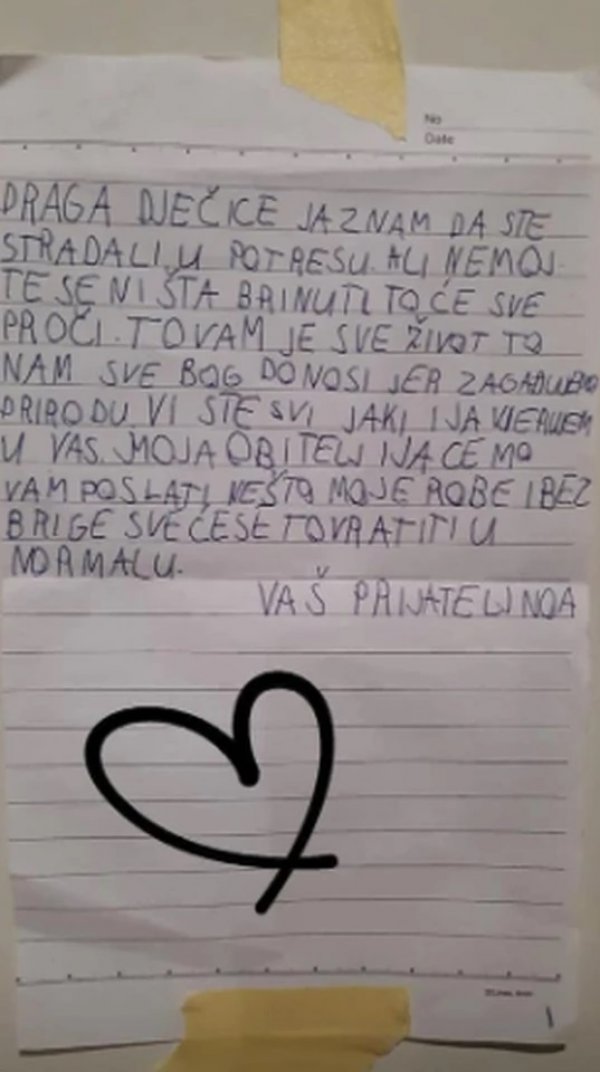 No
Date
DRAGA DJEČICE JA ZNAM DA STE
STRADALI U POTRESU. ALI NEMOJ
TE SE NIŠTA BRINUTI TO ĆE SVE
PROČI. TO VAM JE SVE ŽIVOT TO
NAM SVE BOG DONOSI JER ZAGAĐUJEMO
PRIRODU. VI STE SVI JAKI I JA VJERUJEM
U VAS. MOJA OBITELJ I JA ĆEMO
VAM POSLATI NEŠTO MOJE ROBE I BEZ
BRIGE SVE ĆE SE TO VRATITI U
NORMALU.
VAŠ PRIJATELJ NOA